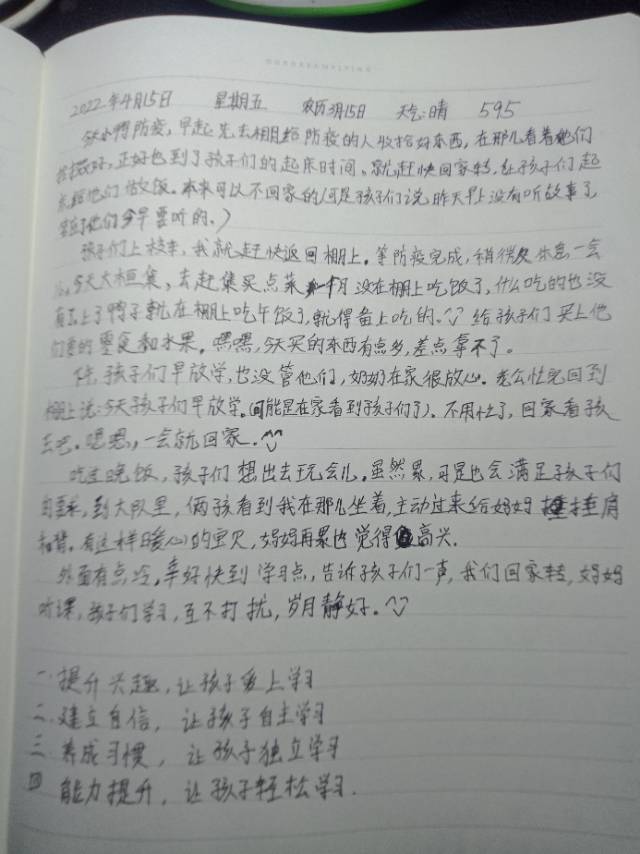 2022年4月15日 星期五 农历3月15日 天气:晴 595
今天小鸭防疫,早起先去棚给防疫的人收拾好东西,在那儿看着他们
好,正好也到了孩子们的起床时间。就赶快回家转,让孩子们起
给他们做饭。本来可以不回家的(可是孩子们说昨天早上没有听故事了
他们今早要听的。)
孩子们上校车,我就赶快返回棚上。等防疫完成,稍微休息一会
今天大桓集,去赶集买点菜一个月没在棚上吃饭了,什么吃的也没
有上了鸭子就在棚上吃午饭了,就得备上吃的。给孩子们买上他
们要的零食和水果。嘿嘿,今天买的东西有点多,差点拿不了。
下午,孩子们早放学,也没管他们,奶奶在家很放心。老公忙完回到
棚上说:今天孩子们早放学。(可能是在家看到孩子们了)。不用忙了,回家看孩
去吧。嗯嗯,一会就回家。
吃过晚饭,孩子们想出去玩会儿。虽然累,可是也会满足孩子们
的要求,到大队里,俩孩看到我在那儿坐着,主动过来给妈妈捶捶肩
和背。有这样暖心的宝贝,妈妈再累也觉得高兴.
外面有点冷。幸好快到学习点,告诉孩子们一声,我们回家转,妈妈
听课,孩子们学习,互不打扰,岁月静好。
一.提升兴趣,让孩子爱上学习
二.建立自信,让孩子自主学习
三.养成习惯,让孩子独立学习
四 能力提升,让孩子轻松学习.